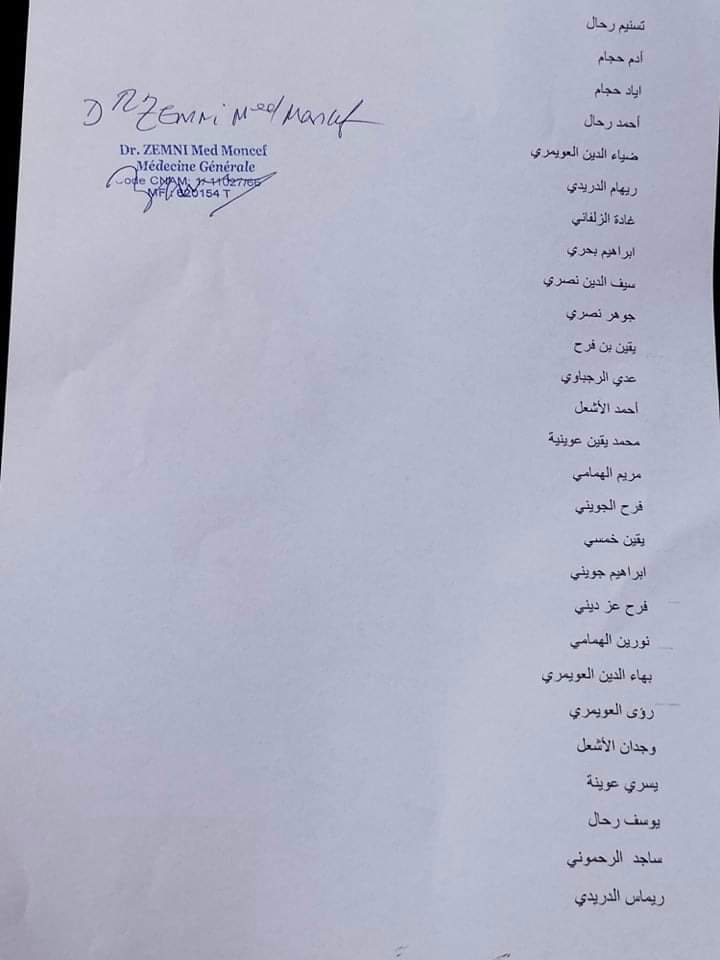 تسنيم رحال
أدم حجام
اياد حجام
أحمد رحال
ضياء الدين العويمري
ريهام الدريدي
غادة الزلفاني
ابراهيم بحري
سيف الدين نصري
جوهر نصري
يقين بن فرح
عدي الرجباوي
أحمد الأشعل
محمد يقين عوينية
مريم الهمامي
فرح الجويني
يقين خمسي
ابراهيم جويني
فرح عز ديني
نورين الهمامي
بهاء الدين العويمري
رؤى العويمري
وجدان الأشعل
يسري عوينة
يوسف رحال
ساجد الرحموني
ريماس الدريدي
Dr ZEMNI Med Moncef
Dr. ZEMNI Med Moncef
Médecine Générale
Code CNAM: 1/ 11027/66
MF: 620154 T